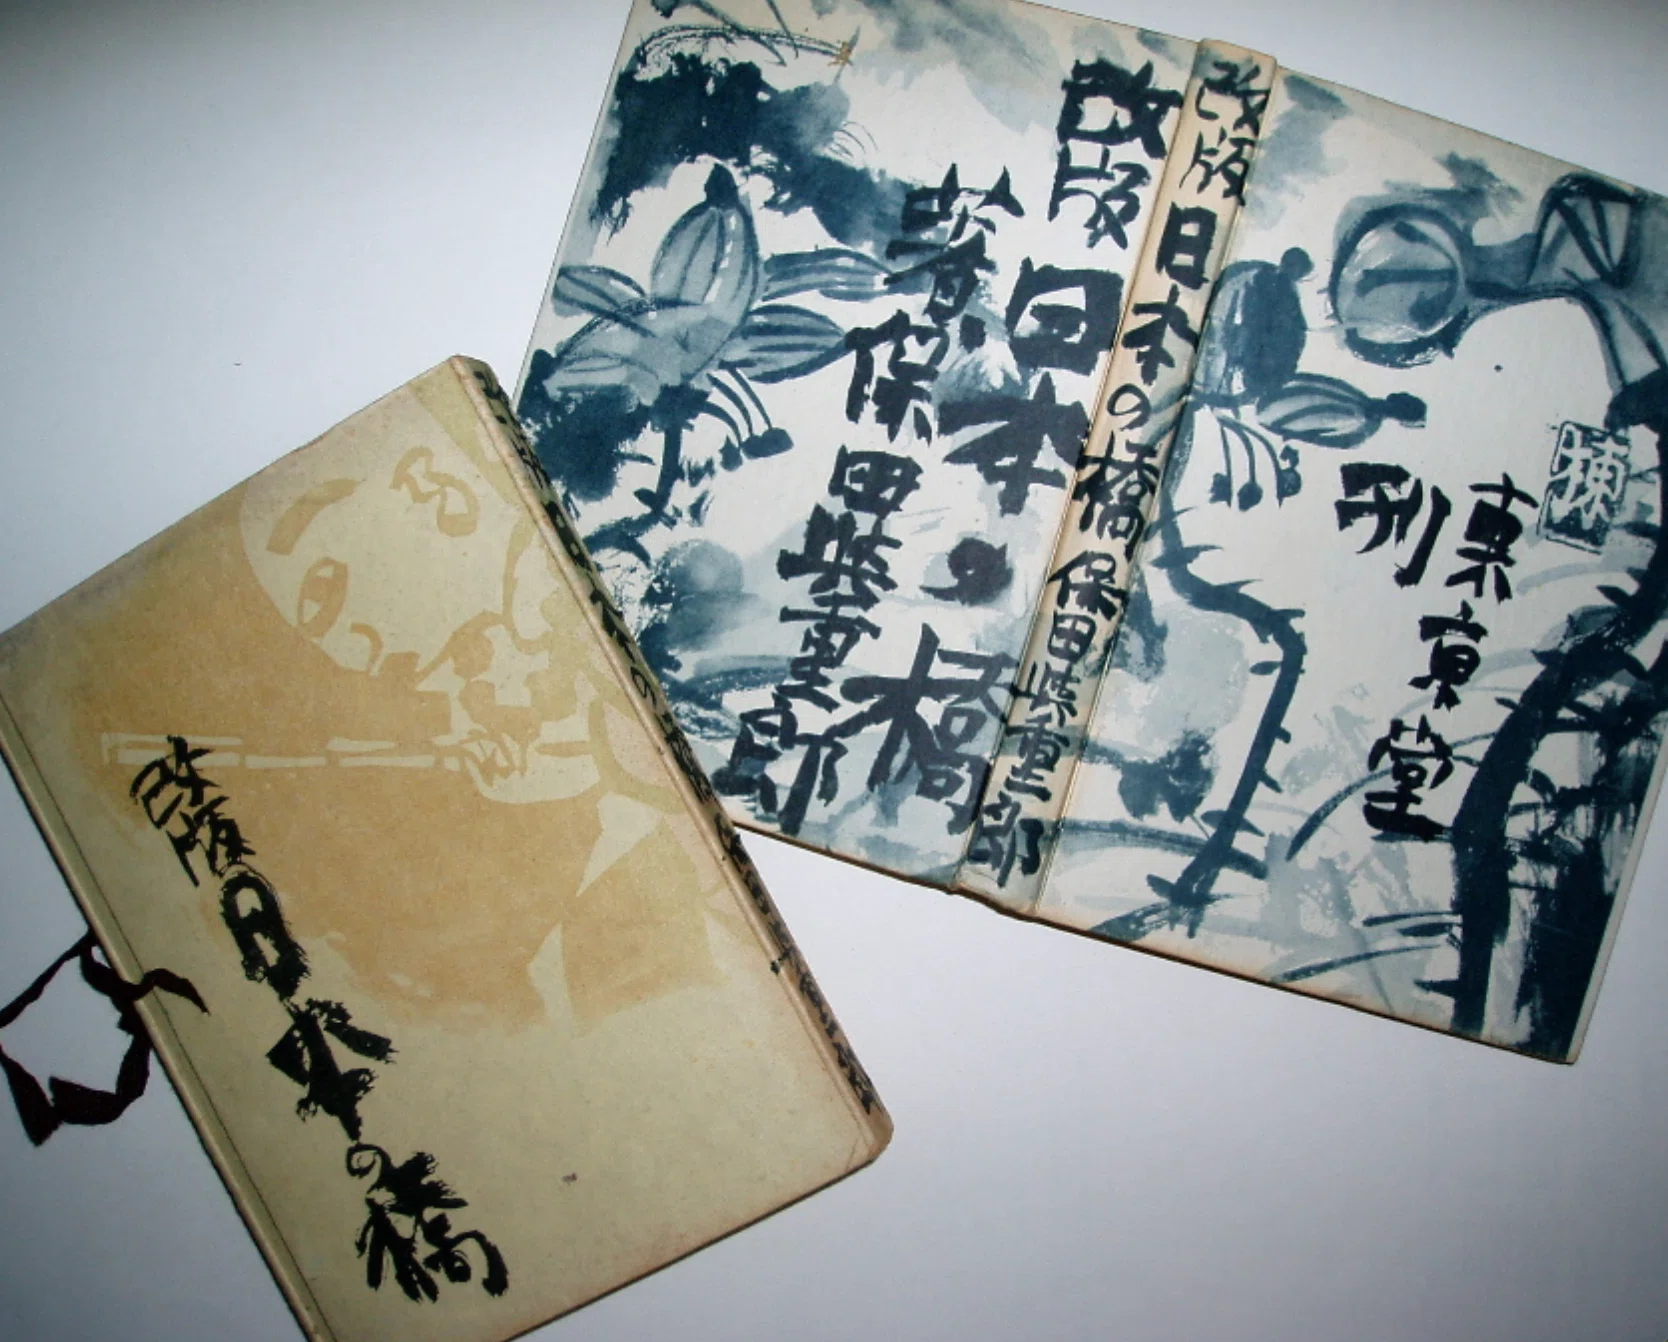 改版
日本の橋
保田與重郎著
改版 日本の橋 保田與重郎
棟
東京堂
刊
改版日本の橋